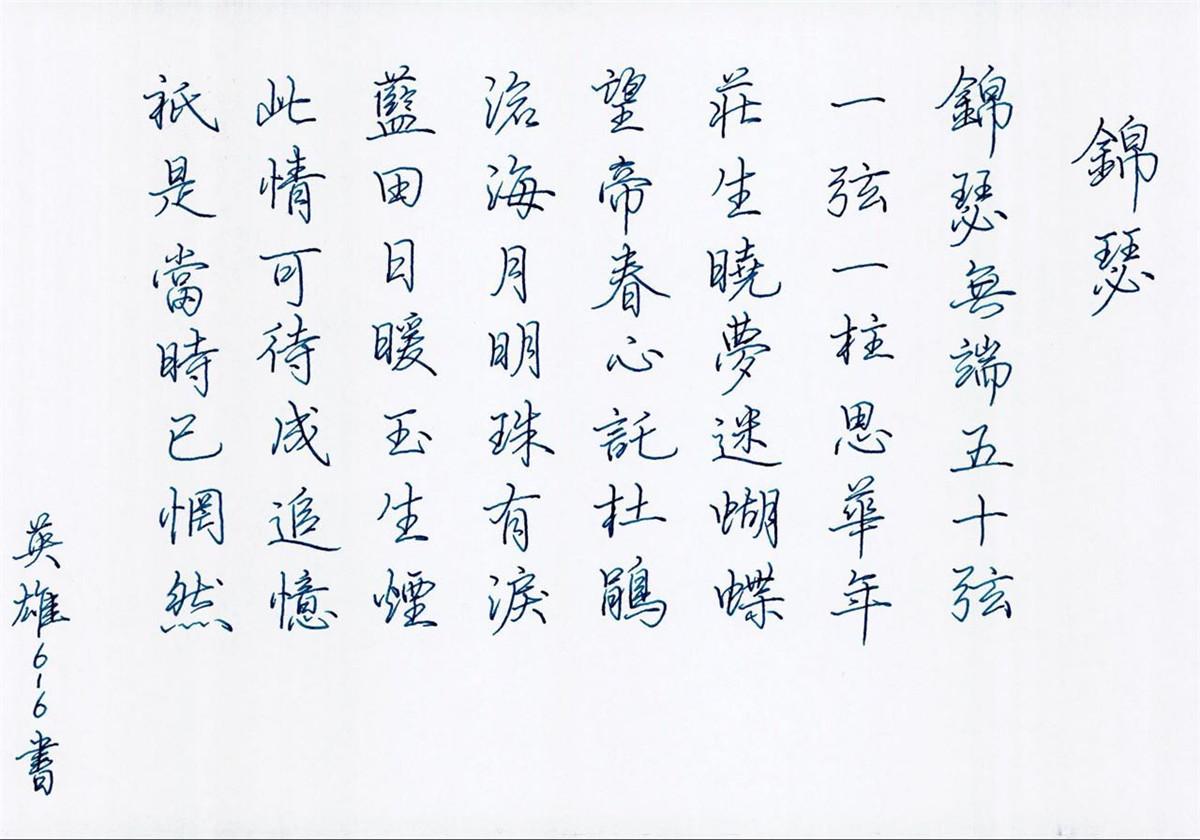 錦瑟
錦瑟無端五十弦
一弦一柱思華年
莊生曉夢迷蝴蝶
望帝春心託杜鵑
滄海月明珠有淚
藍田日暖玉生煙
此情可待成追憶
祇是當時已惘然
英雄616書